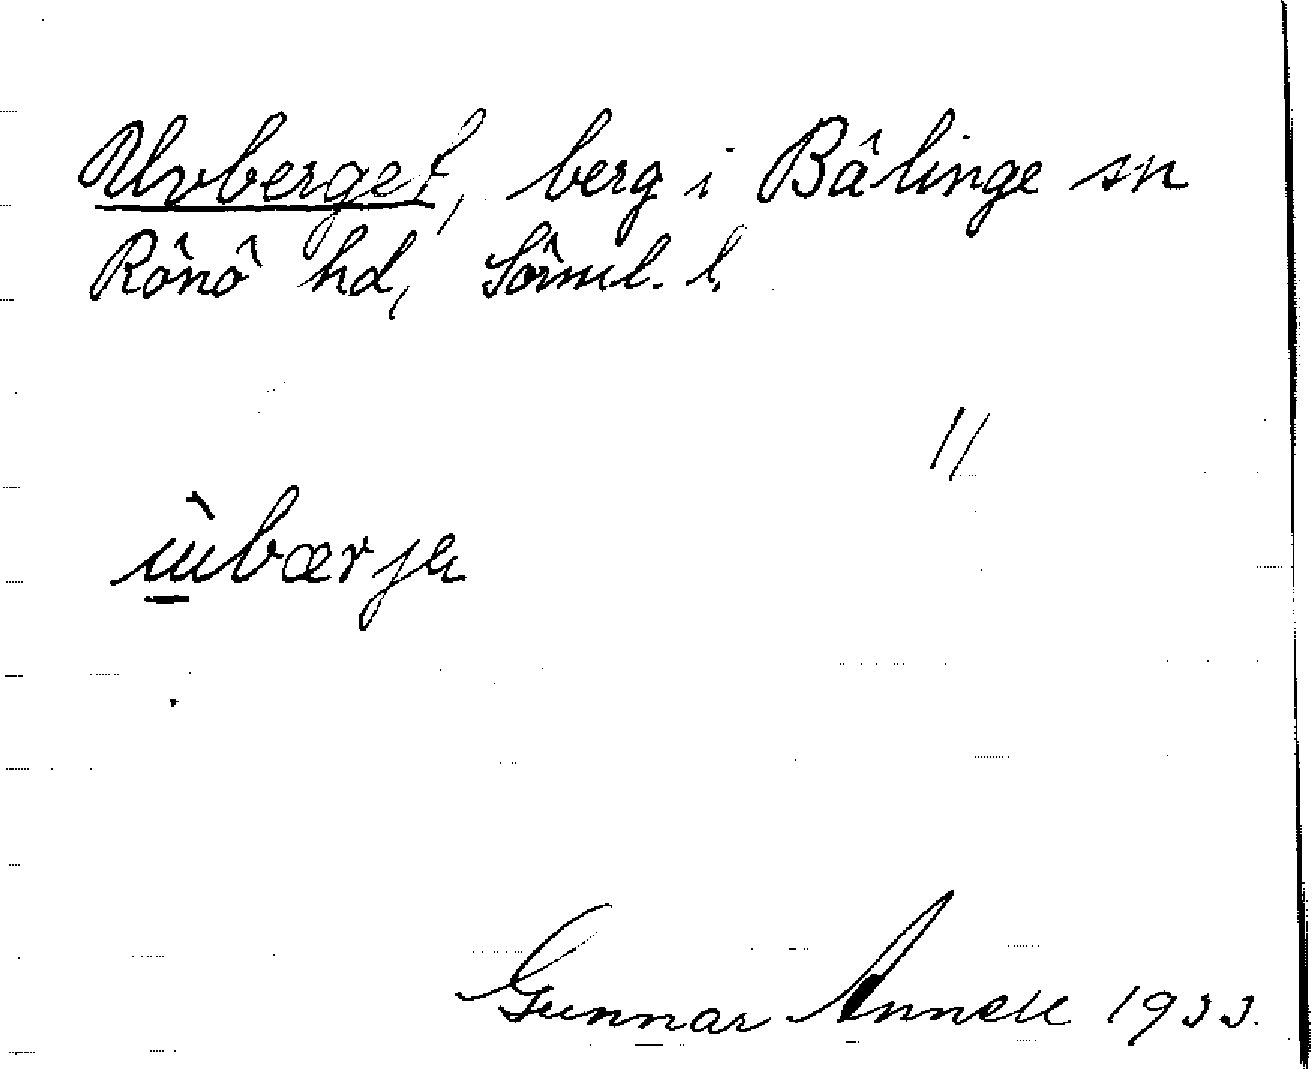 Uvberget, berg i Bålinge sn
Rönö hd, Sörml. l.
11
ùbærja
Gunnar Annell 1933.